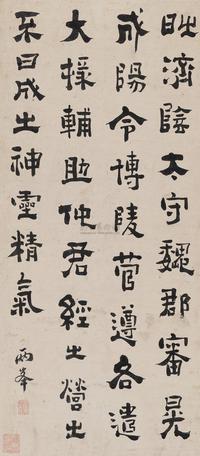 時濟陰太守魏郡審晃
成陽令博陵菅遵各遣
大掾輔助仲君經之營之
不日成之神靈精氣
兩峯